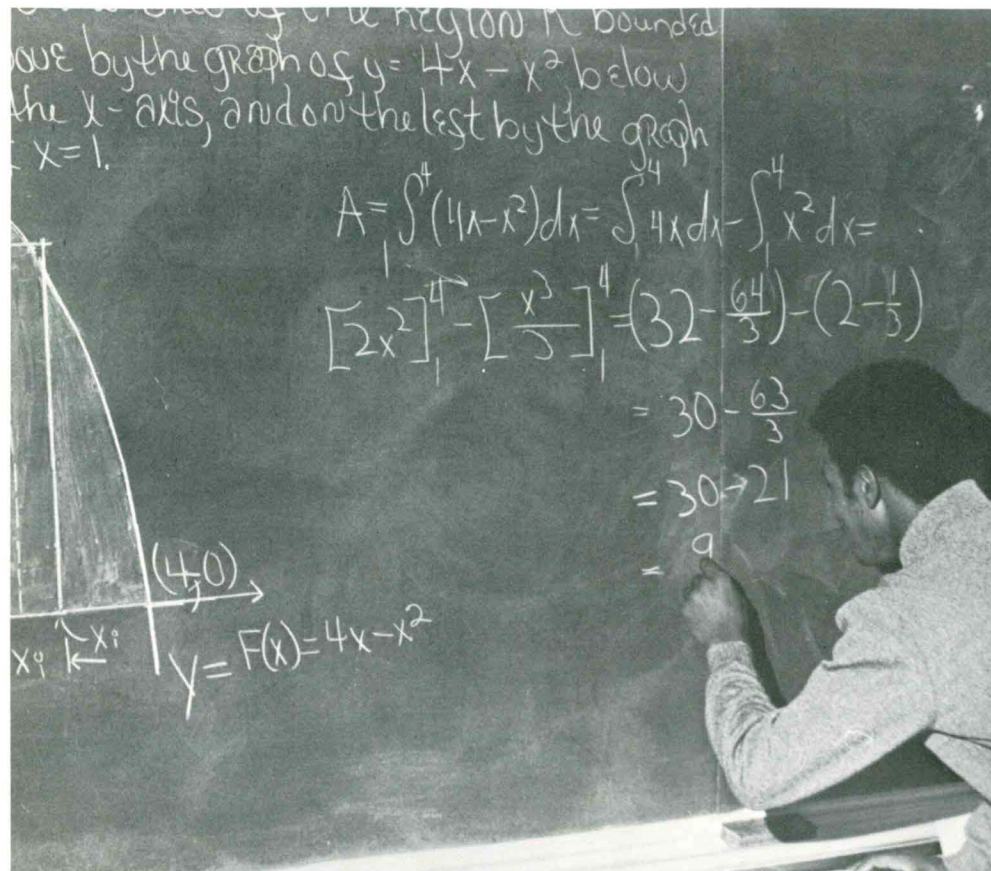 of the Region R bounded
ove by the graph of y = 4x - x² below
the x-axis, and on the left by the graph
x = 1.
A = ∫₁⁴ (4x - x²) dx = ∫₁⁴ 4x dx - ∫₁⁴ x² dx =
[2x²]₁⁴ - [x³/3]₁⁴ = (32 - 64/3) - (2 - 1/3)
= 30 - 63/3
= 30 → 21
= 9
(4,0)
xᵢ xᵢ
y = F(x) = 4x - x²